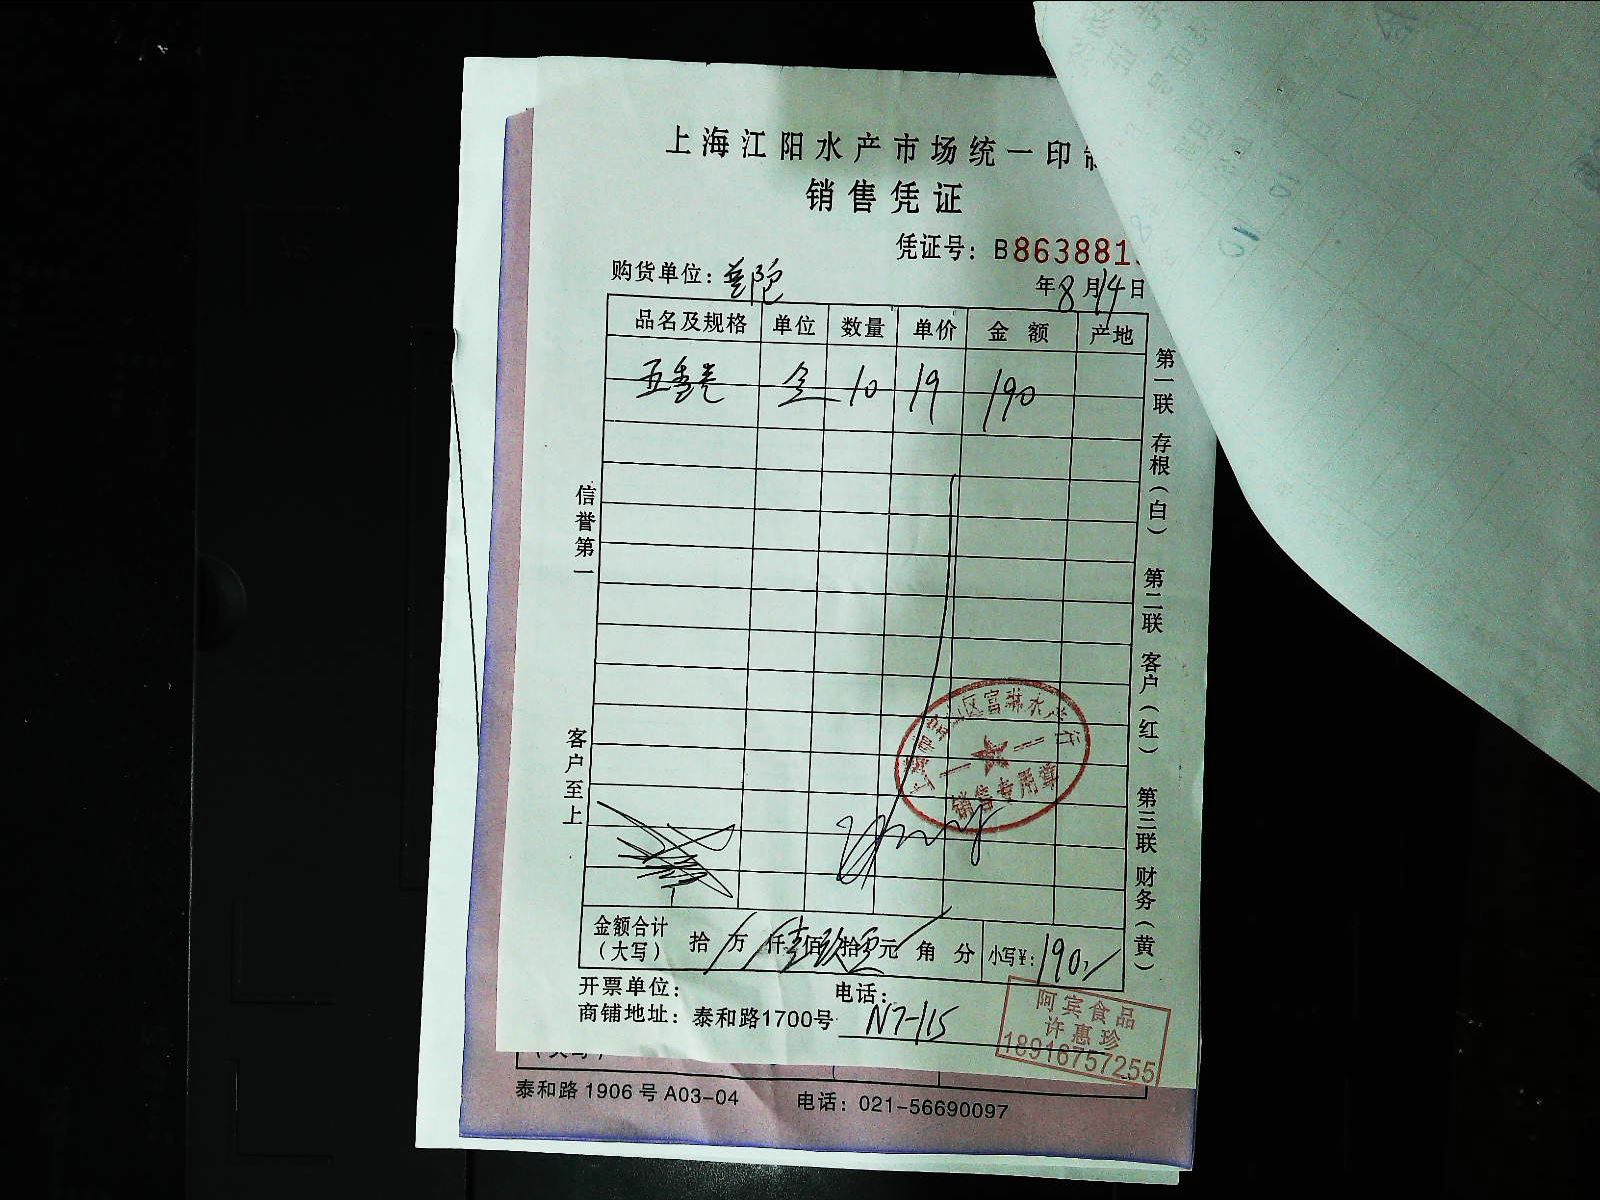 上海江阳水产市场统一印制
销售凭证
凭证号：B863881
购货单位：普陀
年8月14日
品名及规格 单位 数量 单价 金额 产地
五香卷 盒 10 19 190
信誉第一
客户至上
第一联 存根（白） 第二联 客户（红） 第三联 财务（黄）
富
水产行
销售专用章
金额合计（大写） 拾 万 仟壹佰玖拾零元 角 分 小写¥：190
开票单位： 电话：
商铺地址：泰和路1700号 N7-115
阿宾食品
许惠珍
18916757255
（大写）
泰和路1906号A03-04 电话：021-56690097